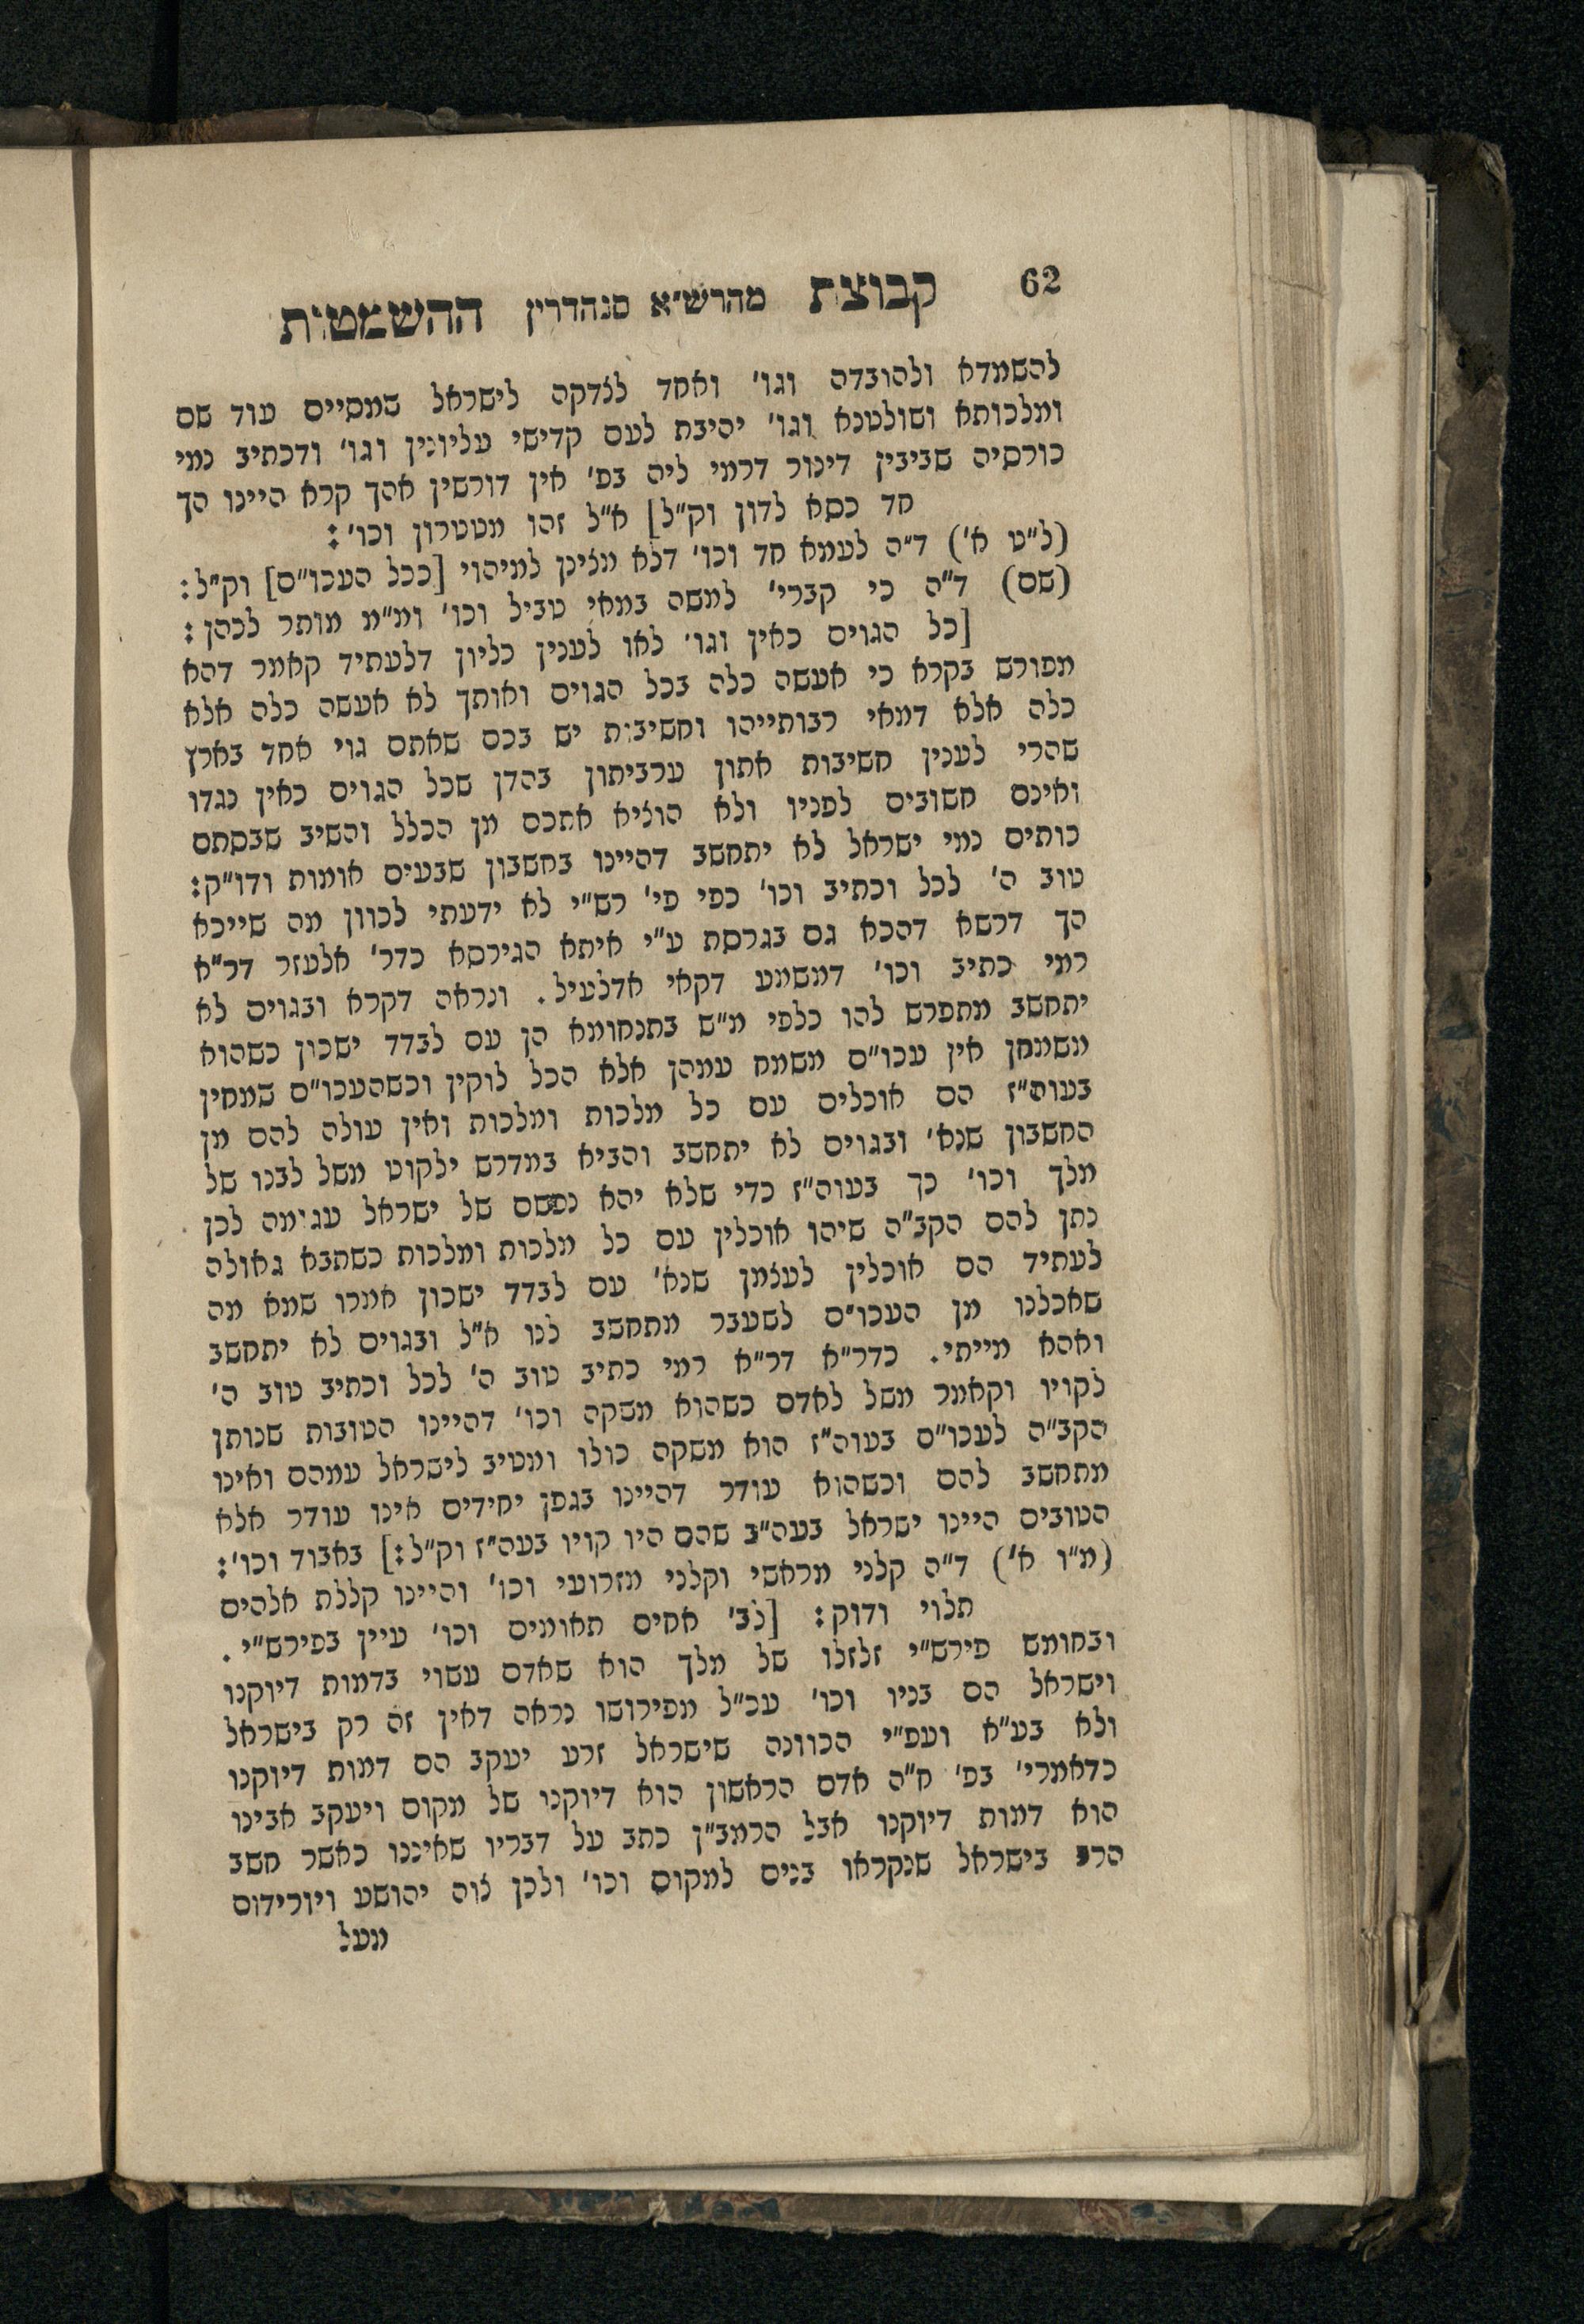 62 קבוצת מהרש"א סנהדרין ההשמטות
להשמדא ולהובדה וגו' ואחד לצדקה לישראל שמסיים עוד שם
ומלכותא ושולטנא וגו' יהיבת לעם קדישי עליונין וגו' ודכתיב נמי
כורסיה שביבין דינור דרמי ליה בפ' אין דורשין אהך קרא היינו הך
חד כסא לדון וק"ל] א"ל זהו מטטרון וכו':
(ל"ט א') ד"ה לעמא חד וכו' דלא מצינן למיהוי [ככל העכו"ם] וק"ל:
(שם) ד"ה כי קברי' למשה במאי טביל וכו' ומ"מ מותר לכהן:
[כל הגוים כאין וגו' לאו לענין כליון דלעתיד קאמר דהא
מפורש בקרא כי אעשה כלה בכל הגוים ואותך לא אעשה כלה אלא
כלה אלא דמאי רבותייהו וחשיבות יש בכם שאתם גוי אחד בארץ
שהרי לענין חשיבות אתון ערביתון בהדן שכל הגוים כאין נגדו
ואינם חשובים לפניו ולא הוציא אתכם מן הכלל והשיב שבסתם
כותים נמי ישראל לא יתחשב דהיינו בחשבון שבעים אומות ודו"ק:
טוב ה' לכל וכתיב וכו' כפי פי' רש"י לא ידעתי לכוון מה שייכא
הך דרשא דהכא גם בגרסת ע"י איתא הגירסא כדר' אלעזר דר"א
רמי כתיב וכו' דמשמע דקאי אדלעיל. ונראה דקרא ובגוים לא
יתחשב מתפרש להו כלפי מ"ש בתנחומא הן עם לבדד ישכון כשהוא
משמחן אין עכו"ם משמח עמהן אלא הכל לוקין וכשהעכו"ם שמחין
בעוה"ז הם אוכלים עם כל מלכות ומלכות ואין עולה להם מן
החשבון שנא' ובגוים לא יתחשב והביא במדרש ילקוט משל לבנו של
מלך וכו' כך בעוה"ז כדי שלא יהא נפשם של ישראל עגומה לכן
נתן להם הקב"ה שיהו אוכלין עם כל מלכות ומלכות כשתבא גאולה
לעתיד הם אוכלין לעצמן שנא' עם לבדד ישכון אמרו שמא מה
שאכלנו מן העכו"ם לשעבר מתחשב לנו א"ל ובגוים לא יתחשב
ואהא מייתי. כדר"א דר"א רמי כתיב טוב ה' לכל וכתיב טוב ה'
לקויו וקאמר משל לאדם כשהוא משקה וכו' דהיינו הטובות שנותן
הקב"ה לעכו"ם בעוה"ז הוא משקה כולו ומטיב לישראל עמהם ואינו
מתחשב להם וכשהוא עודר דהיינו בגפן יחידים אינו עודר אלא
הטובים היינו ישראל בעה"ב שהם היו קויו בעה"ז וק"ל:] באבוד וכו':
(מ"ו א') ד"ה קלני מראשי וקלני מזרועי וכו' והיינו קללת אלהים
תלוי ודוק: [לב' אחים תאומים וכו' עיין בפירש"י.
ובחומש פירש"י זלזלו של מלך הוא שאדם עשוי בדמות דיוקנו
וישראל הם בניו וכו' עכ"ל מפירושו נראה דאין זה רק בישראל
ולא בע"א ועפ"י הכוונה שישראל זרע יעקב הם דמות דיוקנו
כדאמרי' בפ' ח"ה אדם הראשון הוא דיוקנו של מקום ויעקב אבינו
הוא דמות דיוקנו אבל הרמב"ן כתב על דבריו שאיננו כאשר חשב
הרב בישראל שנקראו בנים למקום וכו' ולכן צוה יהושע ויורידום
מעל